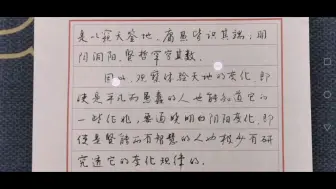 是以窥天鉴地，庸愚皆识其端；明
阴洞阳，贤哲罕穷其数。
因此，观察体验天地的变化，即
使是平凡而愚蠢的人也能知道它的
一些征兆，要通晓明白阴阳变化，即
使是贤能而有智慧的人也极少有研
究透它的变化规律的。